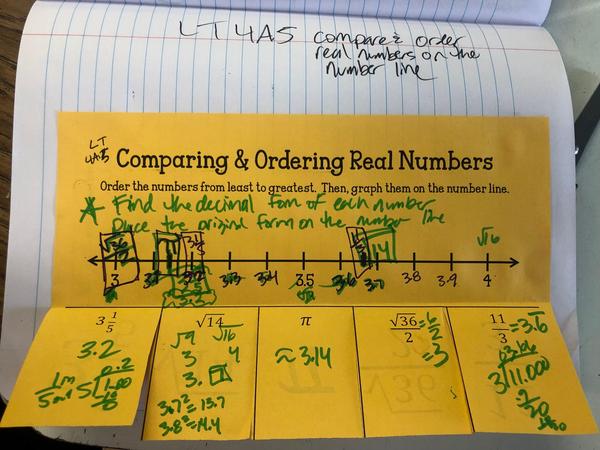 LT 4A5 compare & order
real numbers on the
number line
LT
4A.5
Comparing & Ordering Real Numbers
Order the numbers from least to greatest. Then, graph them on the number line.
Find the decimal form of each number
Place the original form on the number line
√36/2
π
3 1/5
11/3
√14
√16
3
3.1
3.2
3.3
3.4
3.5
3.6
3.7
3.8
3.9
4
3 1/5
3.2
0.2
5 1.00
√14
√9 √16
3 4
3.
3.7²=13.7
3.8²=14.4
π
≈3.14
√36/2 = 6/2
=3
11/3 = 3.6
3 11.000
2
20